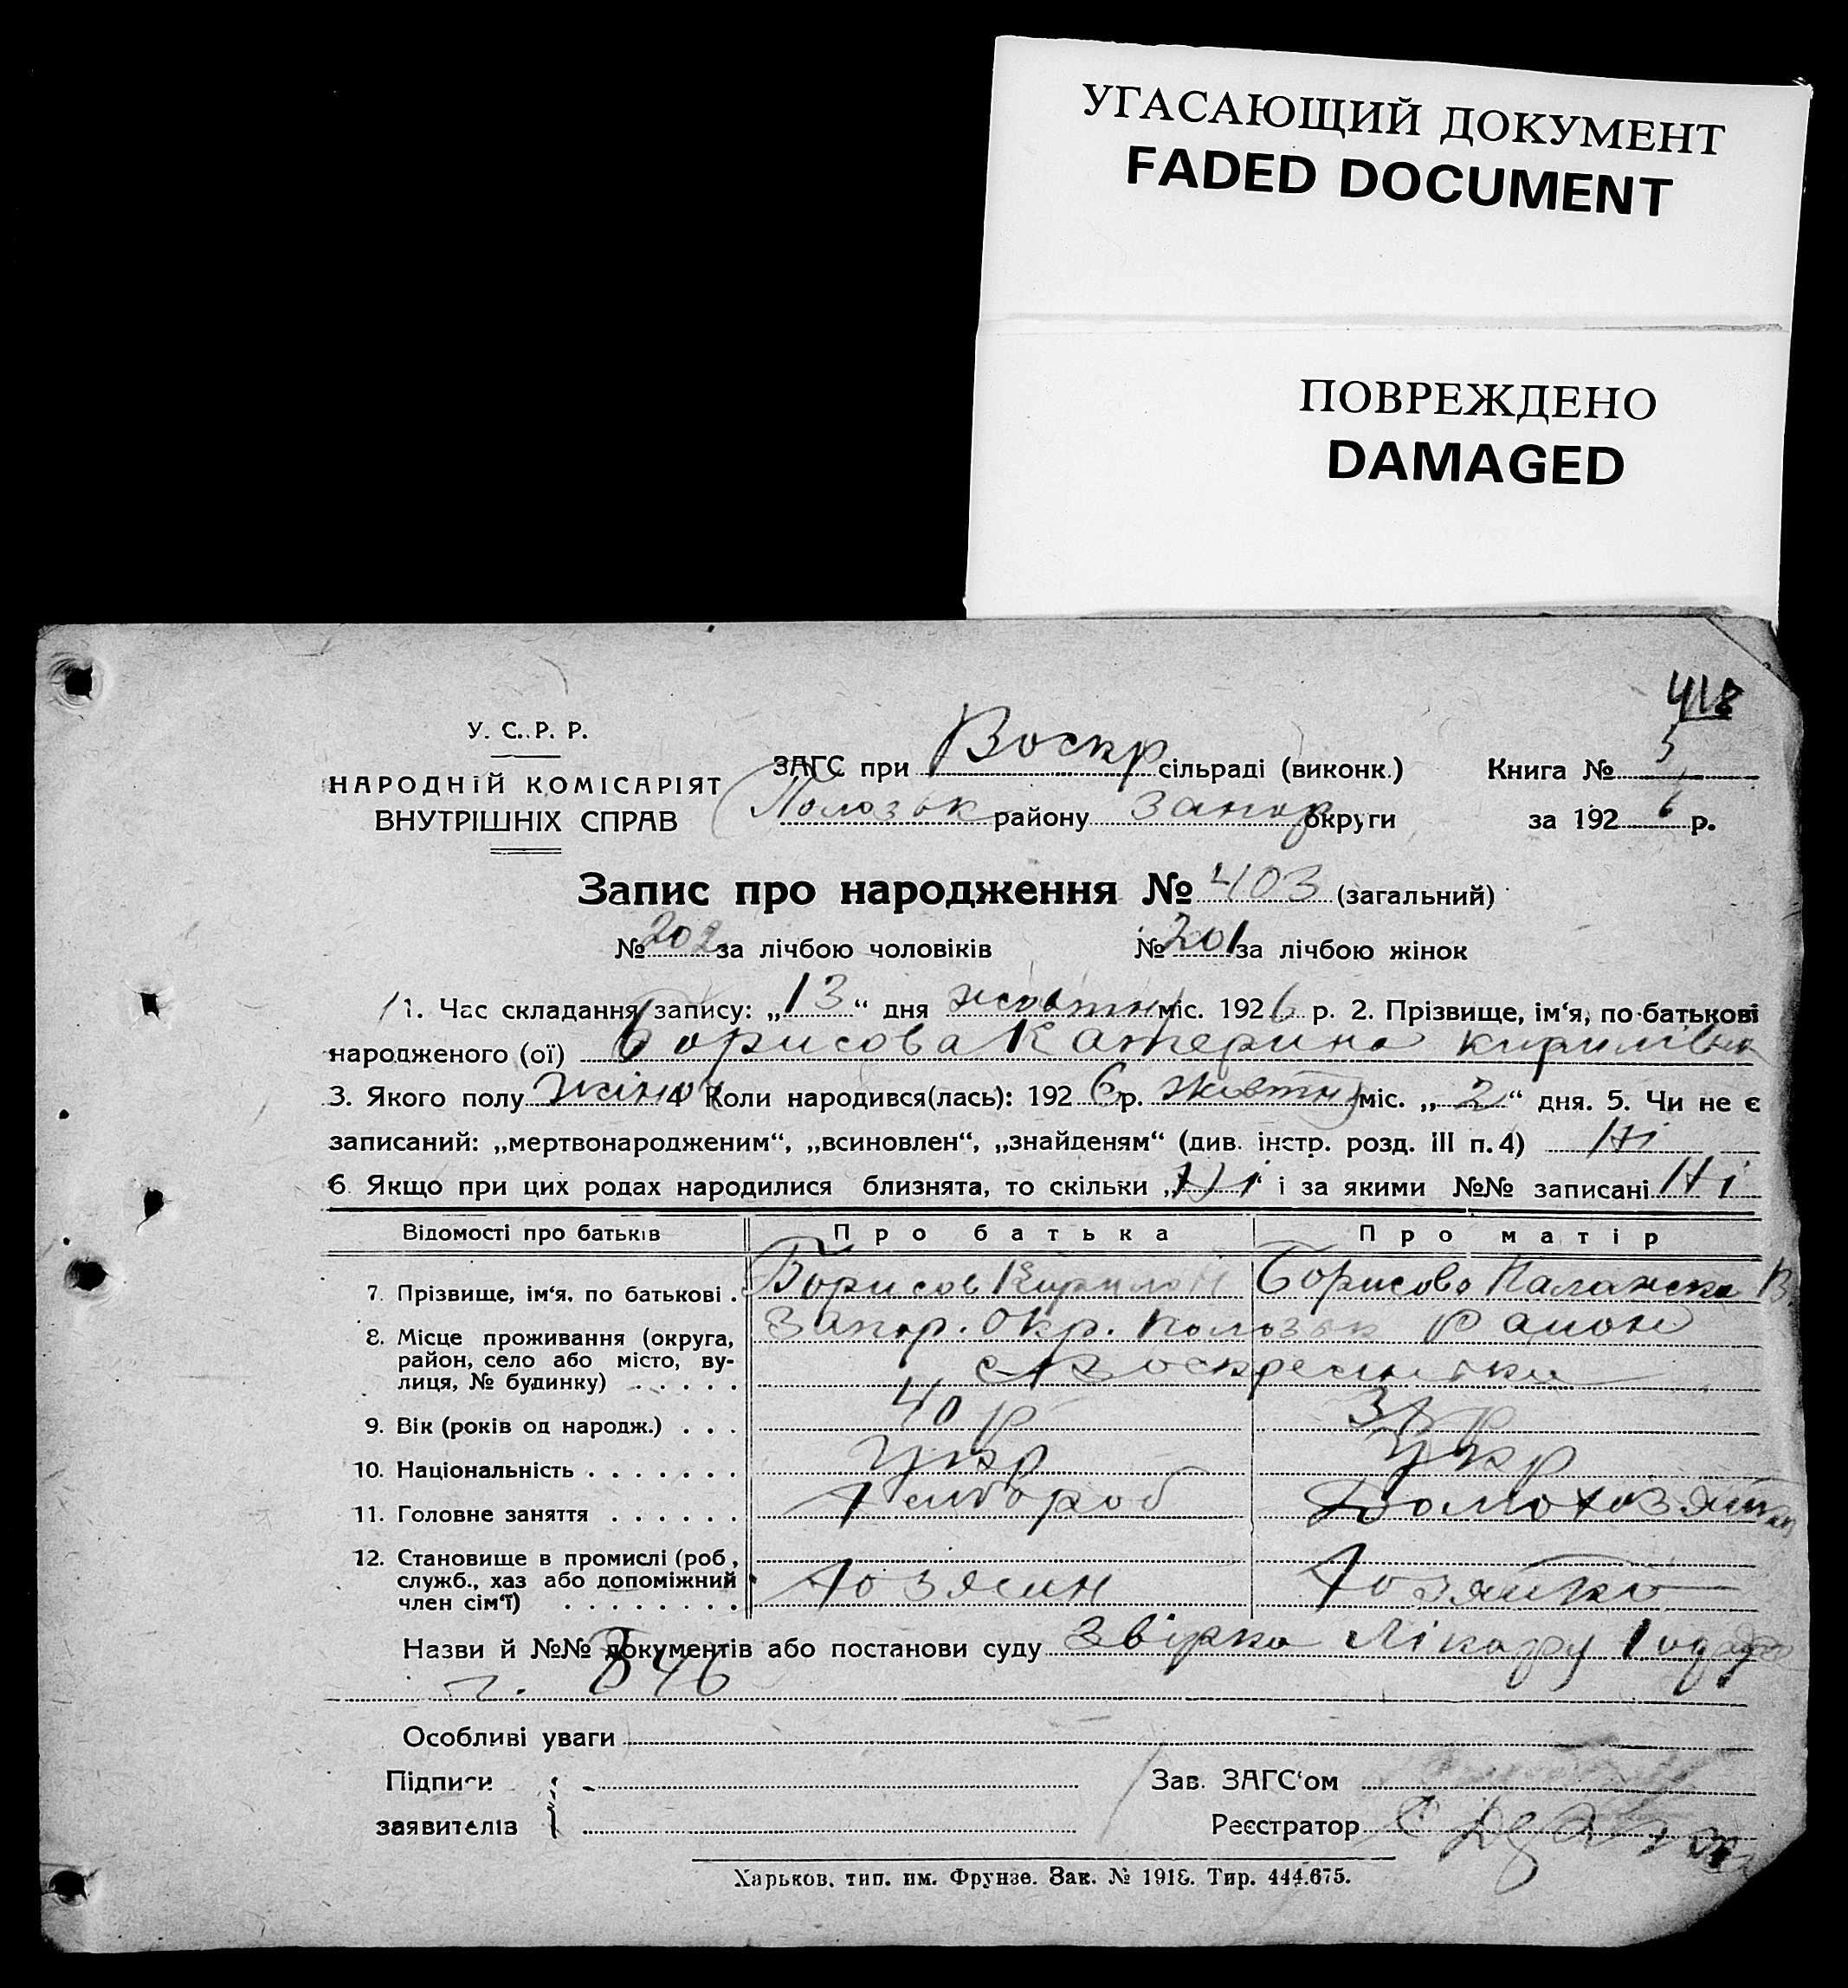 УГАСАЮЩИЙ ДОКУМЕНТ
FADED DOCUMENT
ПОВРЕЖДЕНО
DAMAGED
418
У. С. Р. Р.
НАРОДНІЙ КОМІСАРІЯТ
ВНУТРІШНІХ СПРАВ
ЗАГС при Воскр сільраді (виконк.)
Полозьк району Запор округи
Книга № 5
за 1926 р.
Запис про народження № 403 (загальний)
№ 202 за лічбою чоловіків № 201 за лічбою жінок
1. Час складання запису: „13“ дня жовтня міс. 1926 р. 2. Прізвище, ім‘я, по-батькові
народженого (ої) Борисова Катерина Кирилівна
3. Якого полу жіноч 4 Коли народився(лась): 1926 р. жовтня міс. „2“ дня. 5. Чи не є
записаний: „мертвонародженим“, „всиновлен“, „знайденям“ (див. інстр. розд. III п. 4) Ні
6 Якщо при цих родах народилися близнята, то скільки „Ні“ і за якими №№ записані Ні
Відомості про батьків Про батька Про матір
7. Прізвище, ім‘я, по батькові . Борисов Кирило Борисова Палажка В
8. Місце проживання (округа, район, село або місто, вулиця, № будинку) . . . . . Запор. Окр. Полозьк район
с Воскресенка
9. Вік (років од народж.) . . . 40 р р
10. Національність . . . . . . . Укр Укр
11. Головне заняття . . . . . . Хлібороб Домохозяйка
12. Становище в промислі (роб., служб., хаз або допоміжний член сім‘ї) . . . . . . . . Хозяин Хозяйка
Назви й №№ документів або постанови суду Звірка Лікару
846
Особливі уваги
Підписи
заявителів
Зав. ЗАГС‘ом
Реєстратор
Харьков, тип. им. Фрунзе. Зак. № 1918. Тир. 444.675.